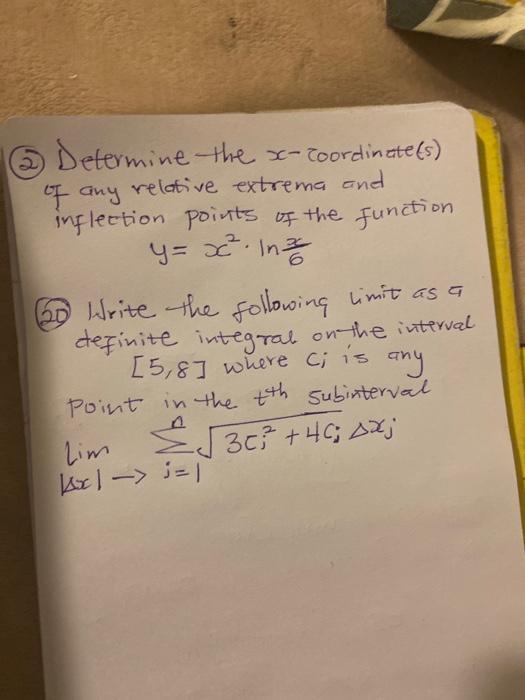 ② Determine the x-coordinate(s)
of any relative extrema and
inflection points of the function
y = x² · ln x/6
⑳ Write the following limit as a
definite integral on the interval
[5,8] where Ci is any
point in the tth subinterval
n
Lim Σ √3Ci² + 4Ci Δxi
|Δx| → i=1